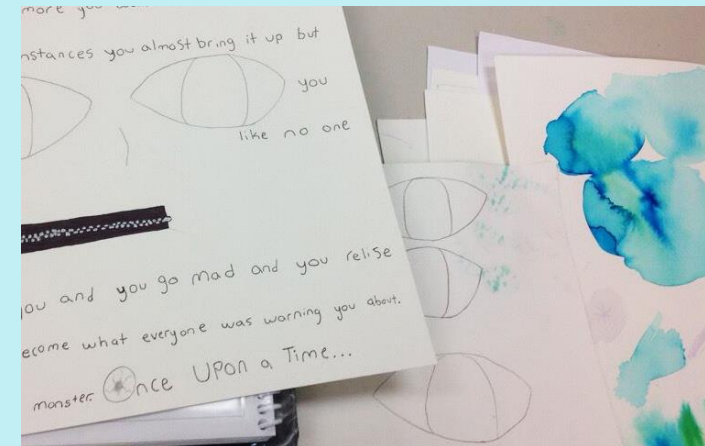 more you
nstances you almost bring it up but
you
like no one
you and you go mad and you relise
ecome what everyone was warning you about.
monster. Once UPON a Time...